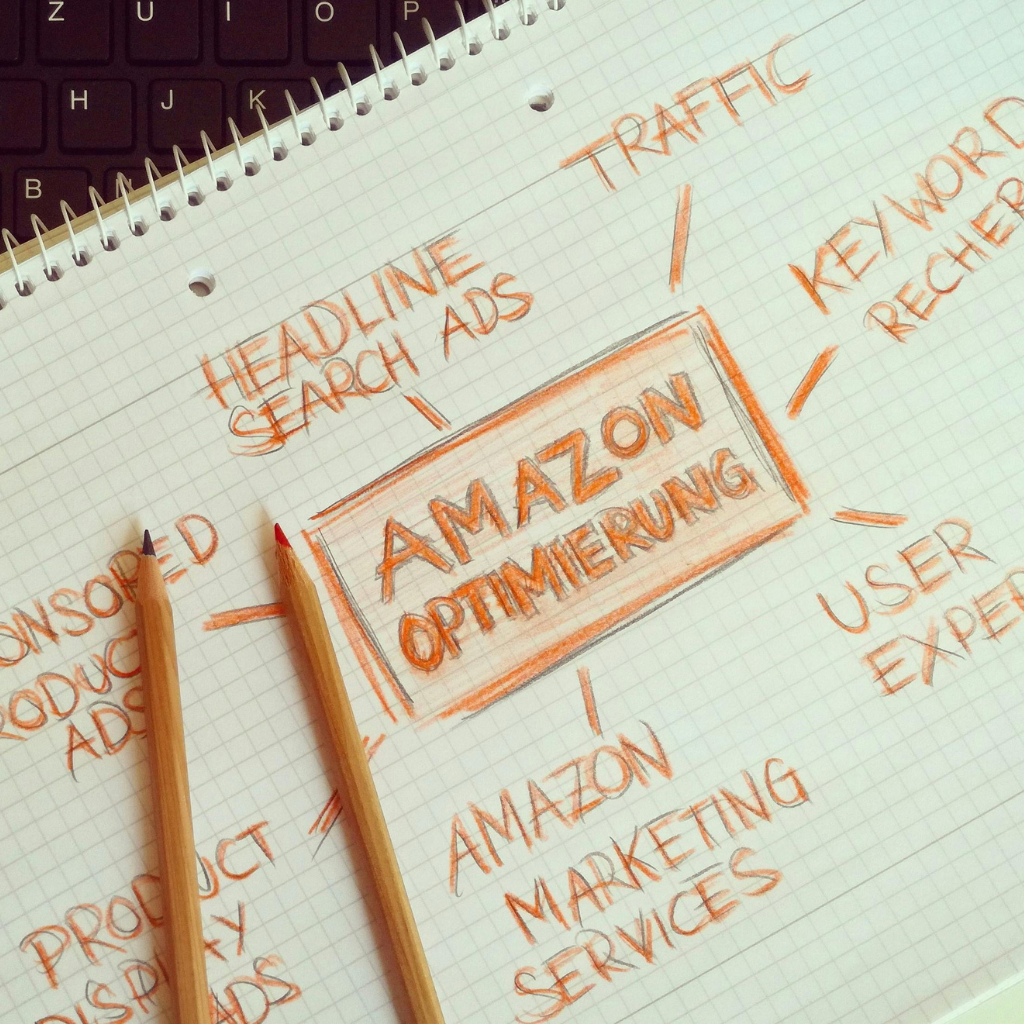 Z U I O P
H J K
B N
TRAFFIC
KEYWORD
RECHER
HEADLINE
SEARCH ADS
AMAZON
OPTIMIERUNG
USER
EXPER
ONSORED
RODUCT
ADS
AMAZON
MARKETING
SERVICES
PRODUCT
DISPLAY
ADS